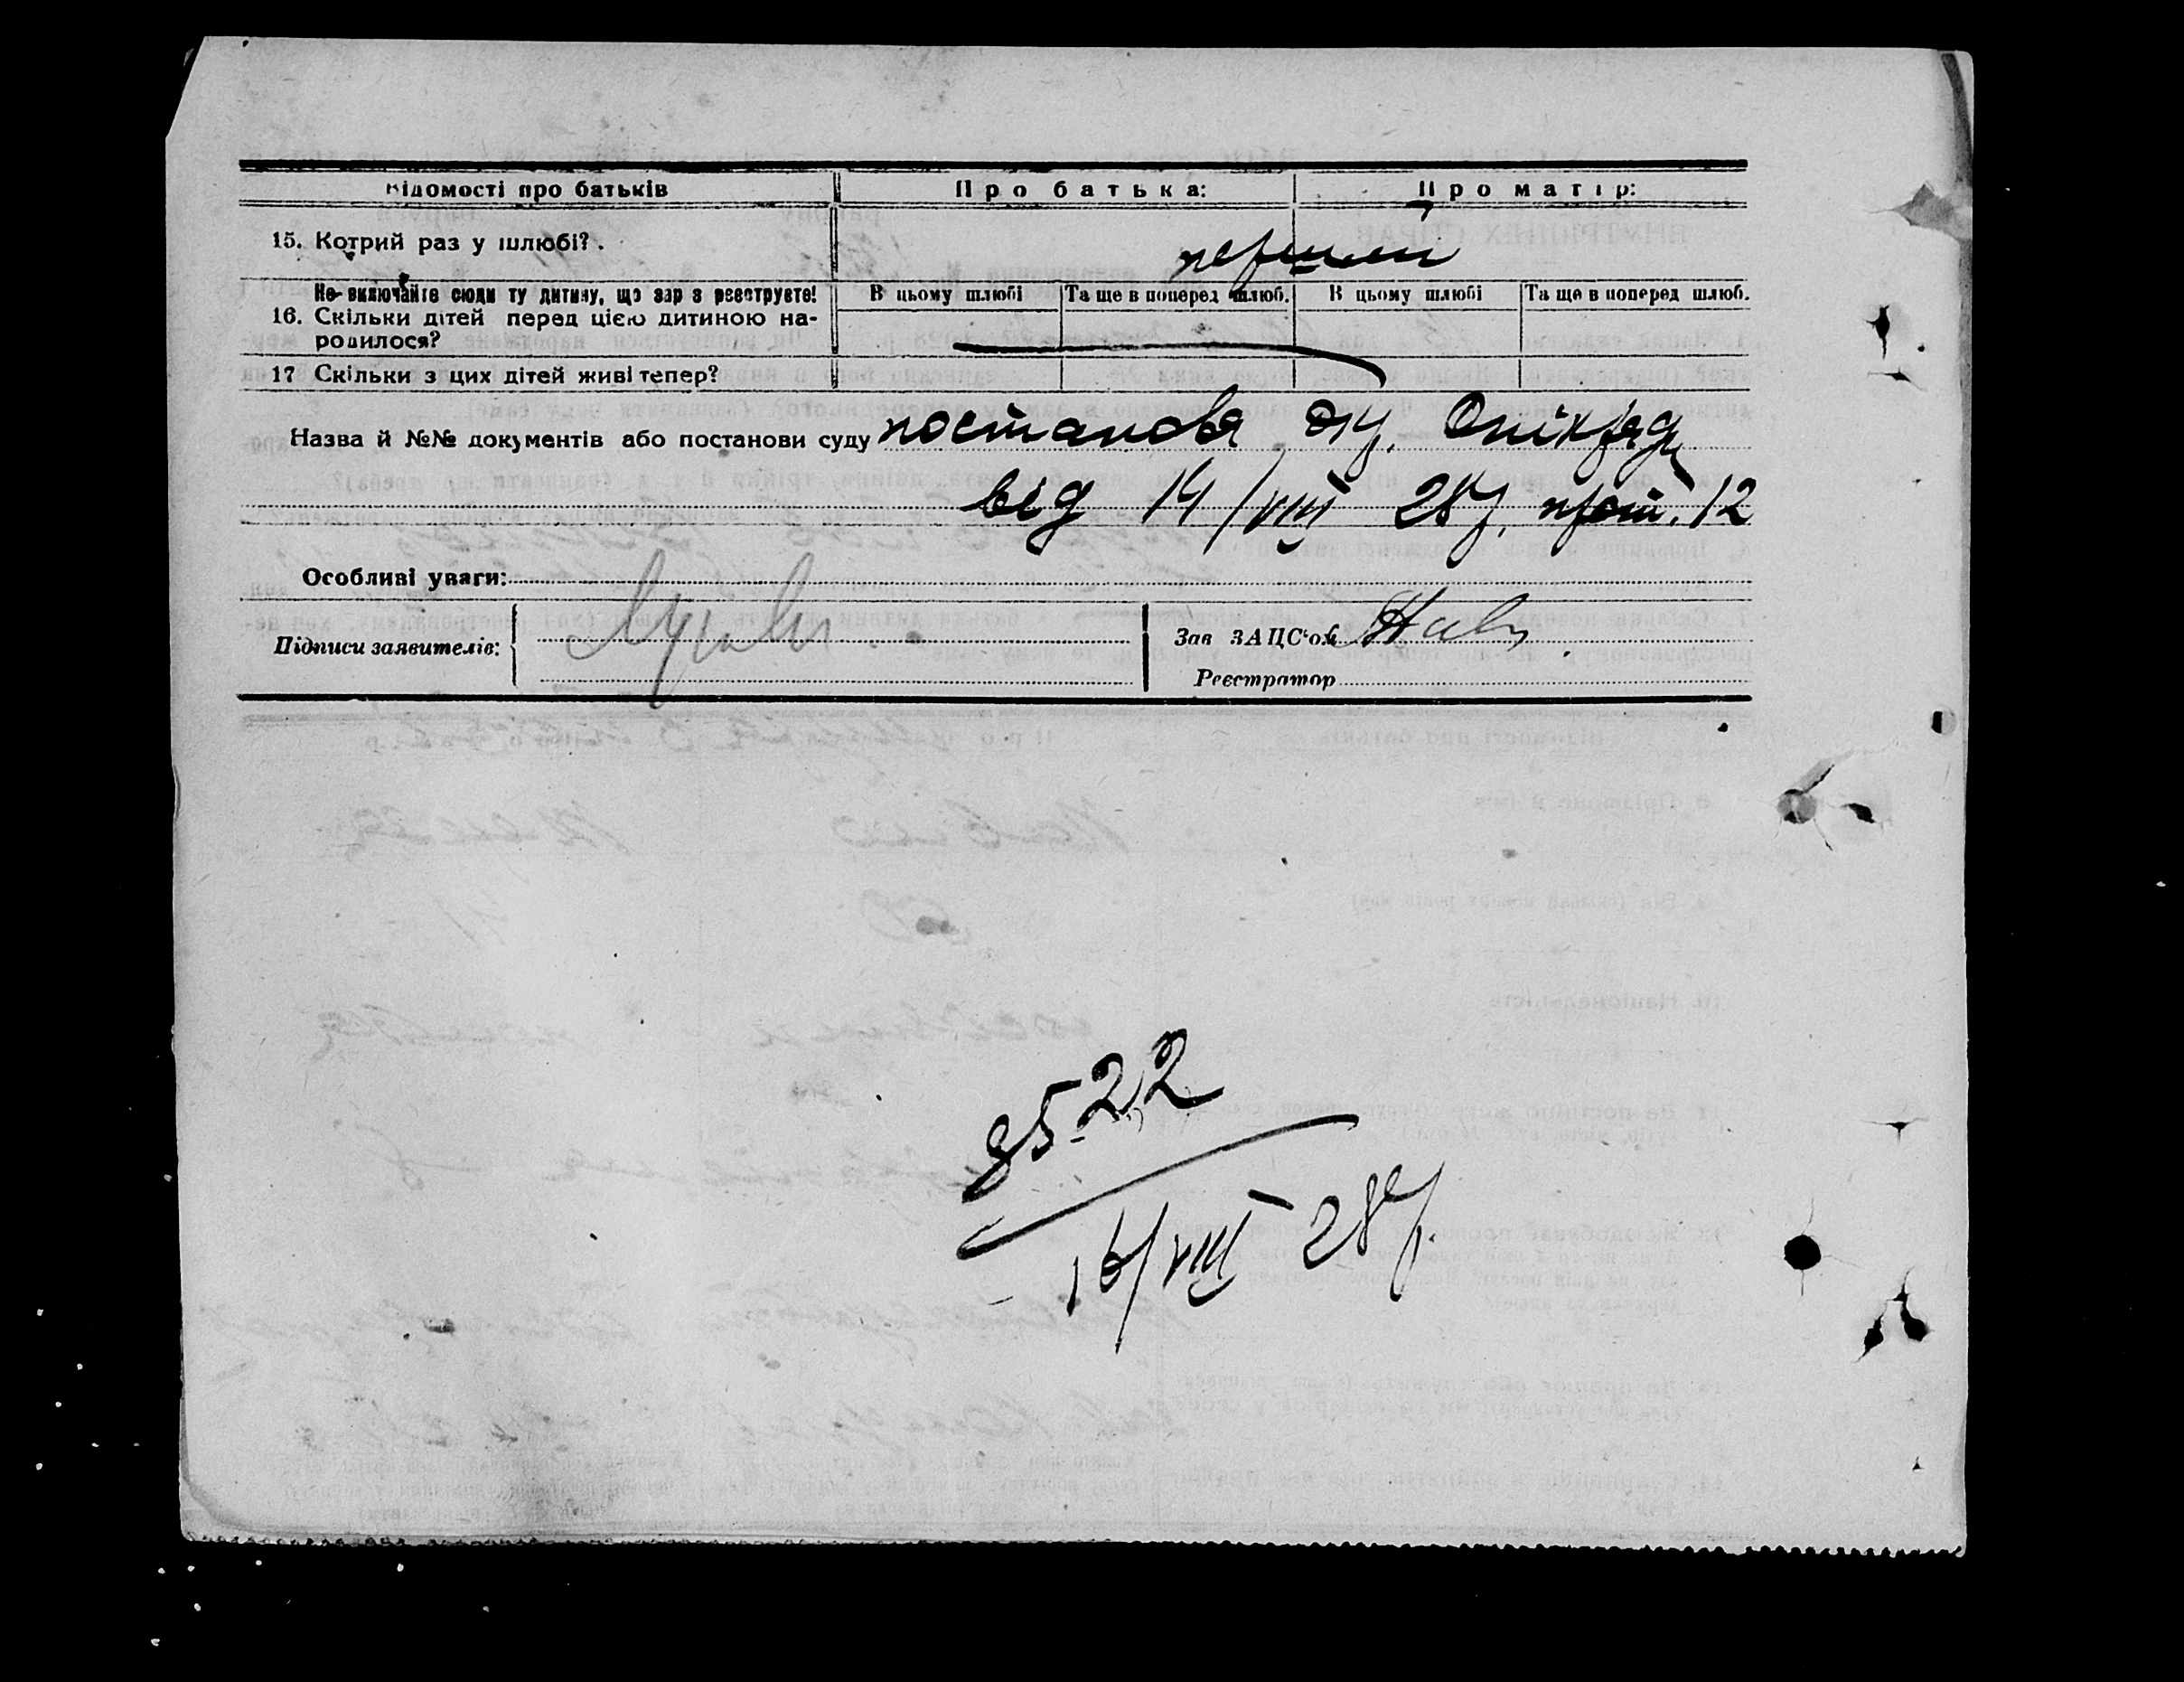 Відомості про батьків Про батька: Про матір:
15. Котрий раз у шлюбі? перший
Не включайте сюди ту дитину, що зараз реєструєте! В цьому шлюбі Та ще в поперед шлюб. В цьому шлюбі Та ще в поперед шлюб.
16. Скільки дітей перед цією дитиною на-
родилося?
17 Скільки з цих дітей живі тепер?
Назва й №№ документів або постанови суду постанова Опікради
від 14/VIII 28 р. прот. 12
Особливі уваги:
Підписи заявителів: Зав ЗАЦС'ом
Реєстратор
8522
16/VIII 28 р.